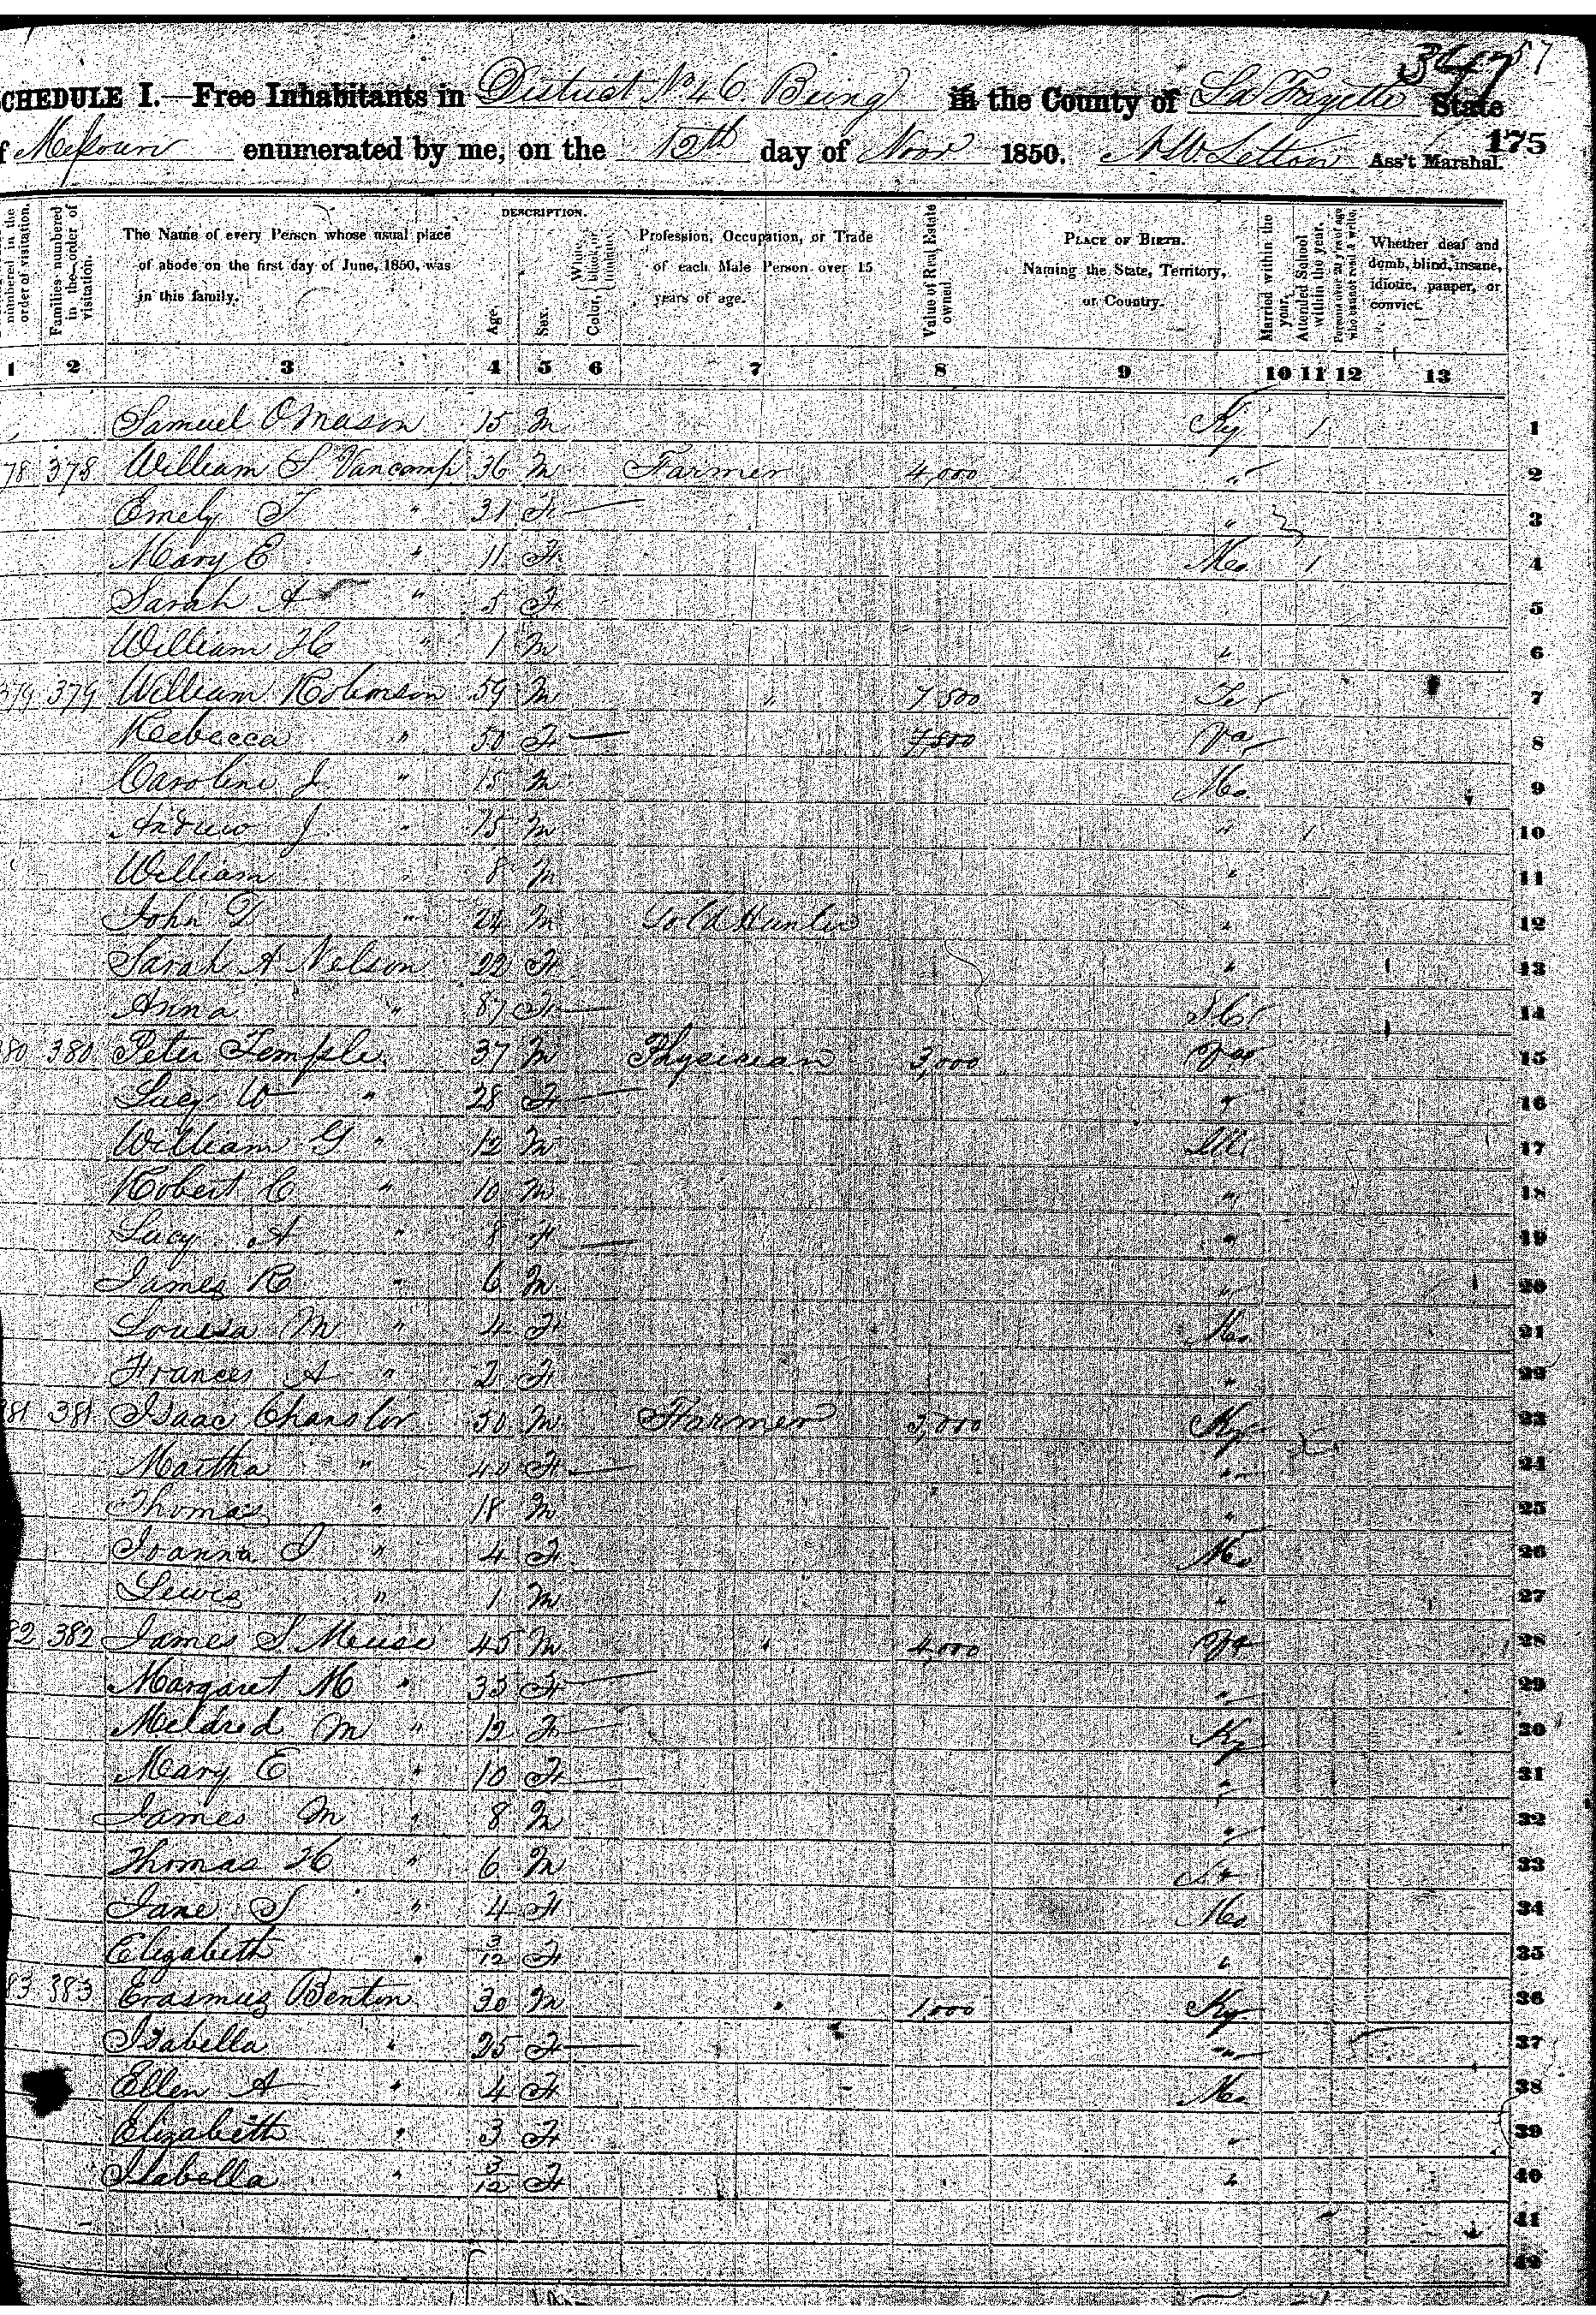 347 57
CHEDULE I.—Free Inhabitants in District No 46 Being in the County of La Fayette State
f Missouri enumerated by me, on the 12th day of Novr 1850. Ass't Marshal.
175
numbered in the order of visitation.
Families numbered in the order of visitation.
The Name of every Person whose usual place of abode on the first day of June, 1850, was in this family.
DESCRIPTION.
Age.
Sex.
Color, White, black, or mulatto.
Profession, Occupation, or Trade of each Male Person over 15 years of age.
Value of Real Estate owned.
PLACE OF BIRTH. Naming the State, Territory, or Country.
Married within the year.
Attended School within the year.
Persons over 20 y'rs of age who cannot read & write.
Whether deaf and dumb, blind, insane, idiotic, pauper, or convict.
1 2 3 4 5 6 7 8 9 10 11 12 13
Samuel O Mason 15 M Ky 1 1
78 378 William S Vancamp 36 M Farmer 4,000 " 2
Emely T " 31 F " 3
Mary E " 11 F Mo 1 4
Sarah A " 5 F 5
William H " 1 M " 6
379 379 William Robinson 59 M " 7,800 Te 7
Rebecca " 50 F 7,800 Va 8
Caroline J " 15 M Mo 9
Andrew J " 15 M " 1 10
William " 8 M " 11
John D " 24 M Gold Hunter " 12
Sarah A Nelson 22 F " 13
Anna " 87 F S.C. 14
380 380 Peter Temple 37 M Physician 3,000 Va 15
Lucy W " 28 F " 16
William G " 12 M Ill 17
Robert C " 10 M " 18
Lucy A " 8 F " 19
James R " 6 M " 20
Louisa M " 4 F Mo 21
Frances A " 2 F " 22
381 381 Isaac Chanslor 50 M Farmer 3,000 Ky 23
Martha " 40 F " 24
Thomas " 18 M " 25
Joanna J " 4 F Mo 26
Lewis " 1 M " 27
82 382 James S Meuse 45 M " 4,000 Va 28
Margaret M " 33 F " 29
Meldred M " 12 F Ky 30
Mary E " 10 F " 31
James M " 8 M " 32
Thomas H " 6 M 33
Jane S " 4 F Mo 34
Elizabeth " 3/12 F " 35
83 383 Erasmus Benton 30 M " 1,000 Ky 36
Isabella " 25 F " 37
Ellen A " 4 F Mo 38
Elizabeth " 3 F " 39
Isabella " 3/12 F " 40
41
42